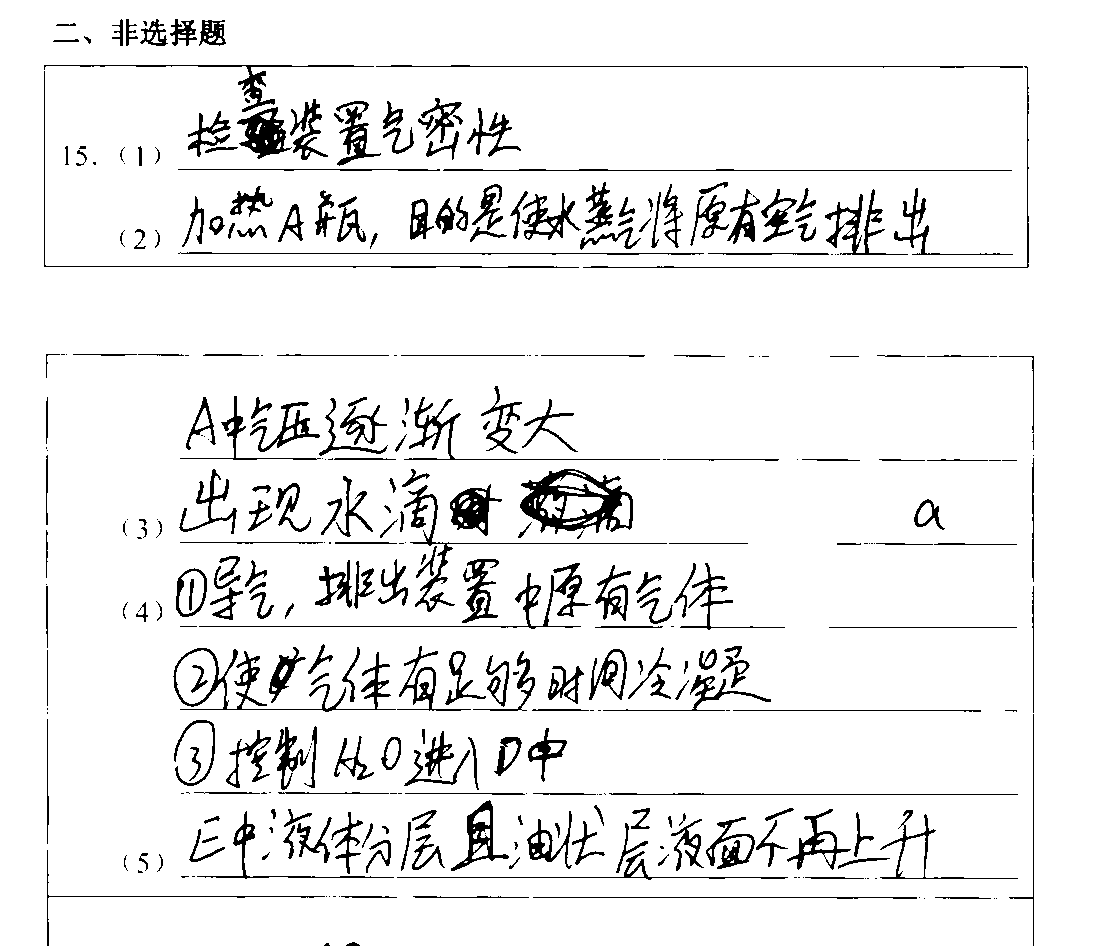 二、非选择题
15.（1）检查装置气密性
（2）加热A瓶，目的是使水蒸气将原有空气排出
A中气压逐渐变大
（3）出现水滴 a
（4）①导气，排出装置中原有气体
②使气体有足够时间冷凝
③控制从O进入D中
（5）E中液体分层且油状层液面不再上升